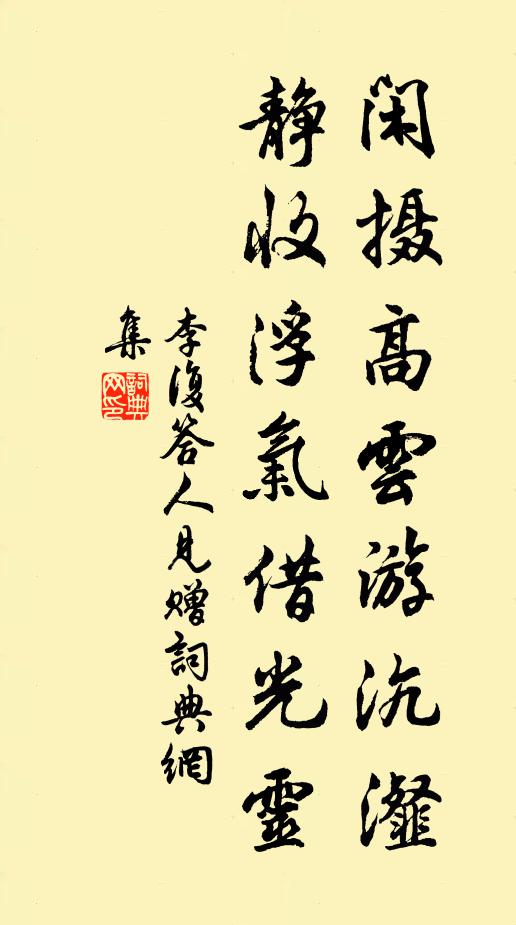 闲摄高雲游沆瀣
静收浮氣借光靈
李復答人見赠詞典網
集
詞典网印